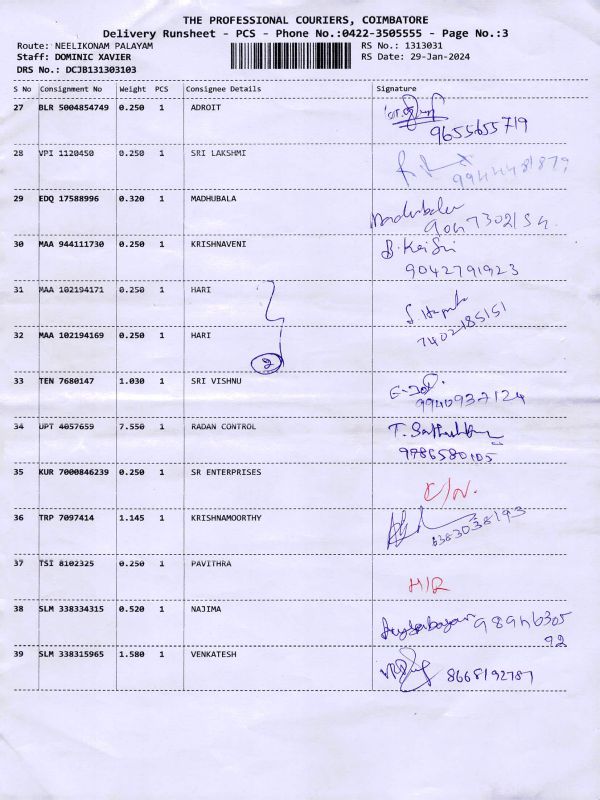 THE PROFESSIONAL COURIERS, COIMBATORE
Delivery Runsheet - PCS - Phone No.:0422-3505555 - Page No.:3
Route: NEELIKONAM PALAYAM RS No.: 1313031
Staff: DOMINIC XAVIER RS Date: 29-Jan-2024
DRS No.: DCJB131303103
S No Consignment No Weight PCS Consignee Details Signature
27 BLR 5004854749 0.250 1 ADROIT
9655655719
28 VPI 1120450 0.250 1 SRI LAKSHMI
9944481879
29 EDQ 17588996 0.320 1 MADHUBALA
Madhubala
30 MAA 944111730 0.250 1 KRISHNAVENI
9042791923
31 MAA 102194171 0.250 1 HARI
7402185151
32 MAA 102194169 0.250 1 HARI
2
33 TEN 7680147 1.030 1 SRI VISHNU
9940937124
34 UPT 4057659 7.550 1 RADAN CONTROL
9986580105
35 KUR 7000846239 0.250 1 SR ENTERPRISES
36 TRP 7097414 1.145 1 KRISHNAMOORTHY
6383038193
37 TSI 8102325 0.250 1 PAVITHRA
38 SLM 338334315 0.520 1 NAJIMA
92
39 SLM 338315965 1.580 1 VENKATESH
8668192787